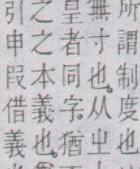 所謂制度也
無寸也。从㞢
皇者同字。猶
之之本義也。
引申叚借義